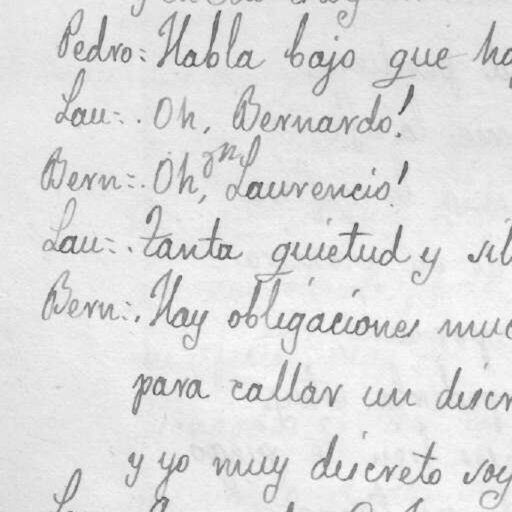 Pedro: Habla bajo que
Lau=. Oh, Bernardo!
Bern=. Oh, Sn Laurencio!
Lau=. Tanta quietud y
Bern=. Hay obligaciones
para callar un
y yo muy discreto soy